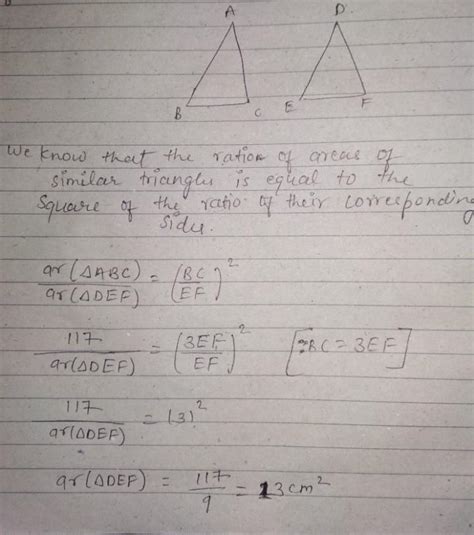 A D.
B C E F
We know that the ration of areas of
similar triangles is equal to the
Square of the ratio of their corresponding
sides.
ar(ΔABC)/ar(ΔDEF) = (BC/EF)²
117/ar(ΔDEF) = (3EF/EF)² [∵BC = 3EF]
117/ar(ΔDEF) = (3)²
ar(ΔDEF) = 117/9 = 13cm²